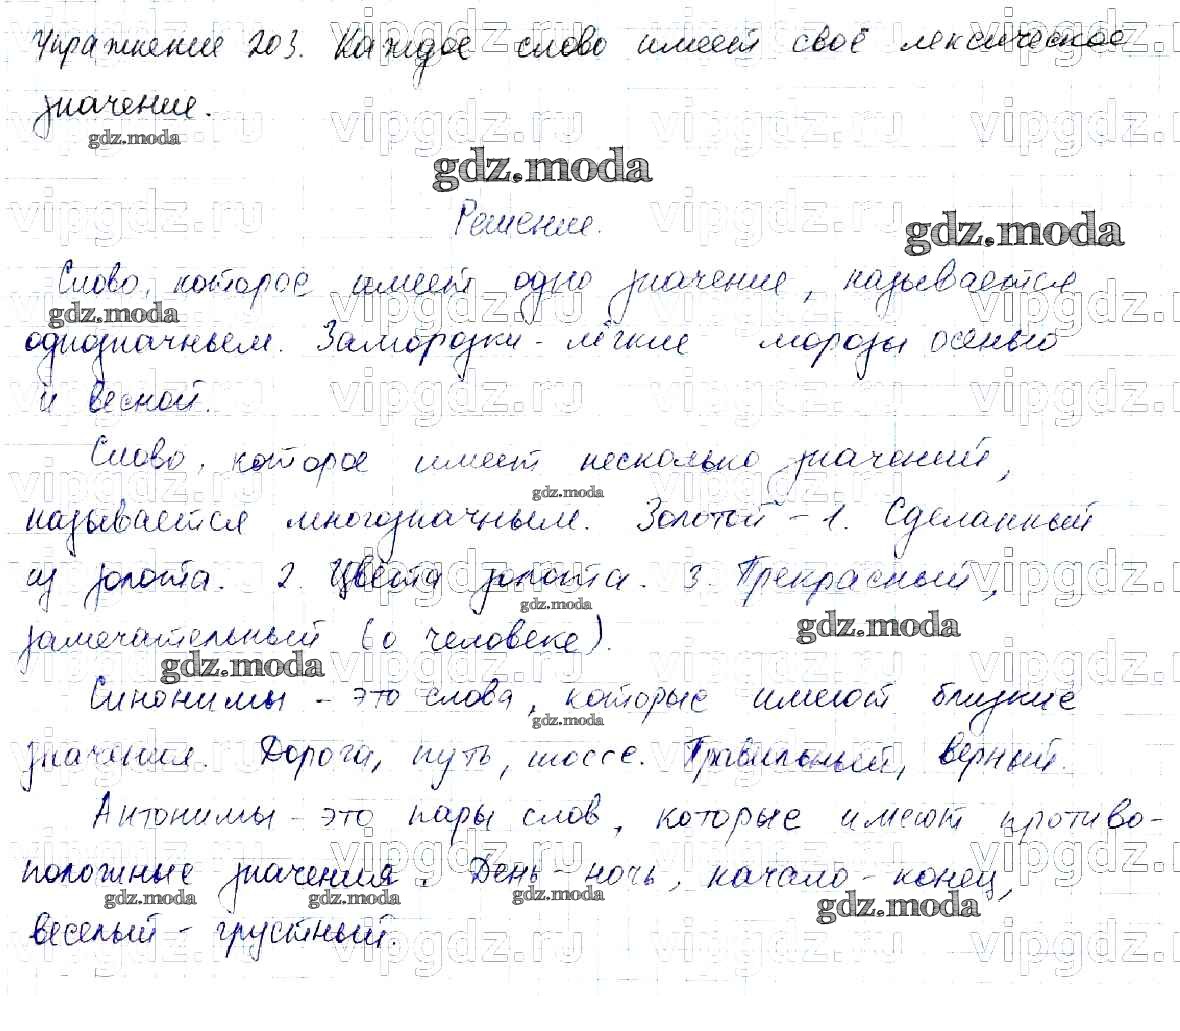 Упражнение 203. Каждое слово имеет своё лексическое
значение.
gdz.moda
gdz.moda
Решение.
gdz.moda
Слово, которое имеет одно значение, называется
gdz.moda
однозначным. Заморозки - лёгкие морозы осенью
и весной.
Слово, которое имеет несколько значений,
gdz.moda
называется многозначным. Золотой - 1. Сделанный
из золота. 2. Цвета золота. 3. Прекрасный,
gdz.moda
gdz.moda
замечательный (о человеке).
gdz.moda
Синонимы - это слова, которые имеют близкие
gdz.moda
значения. Дорога, путь, шоссе. Правильный, верный.
Антонимы - это пары слов, которые имеют противо-
положные значения. День - ночь, начало - конец,
gdz.moda
gdz.moda
gdz.moda
gdz.moda
веселый - грустный.
vipgdz.ru